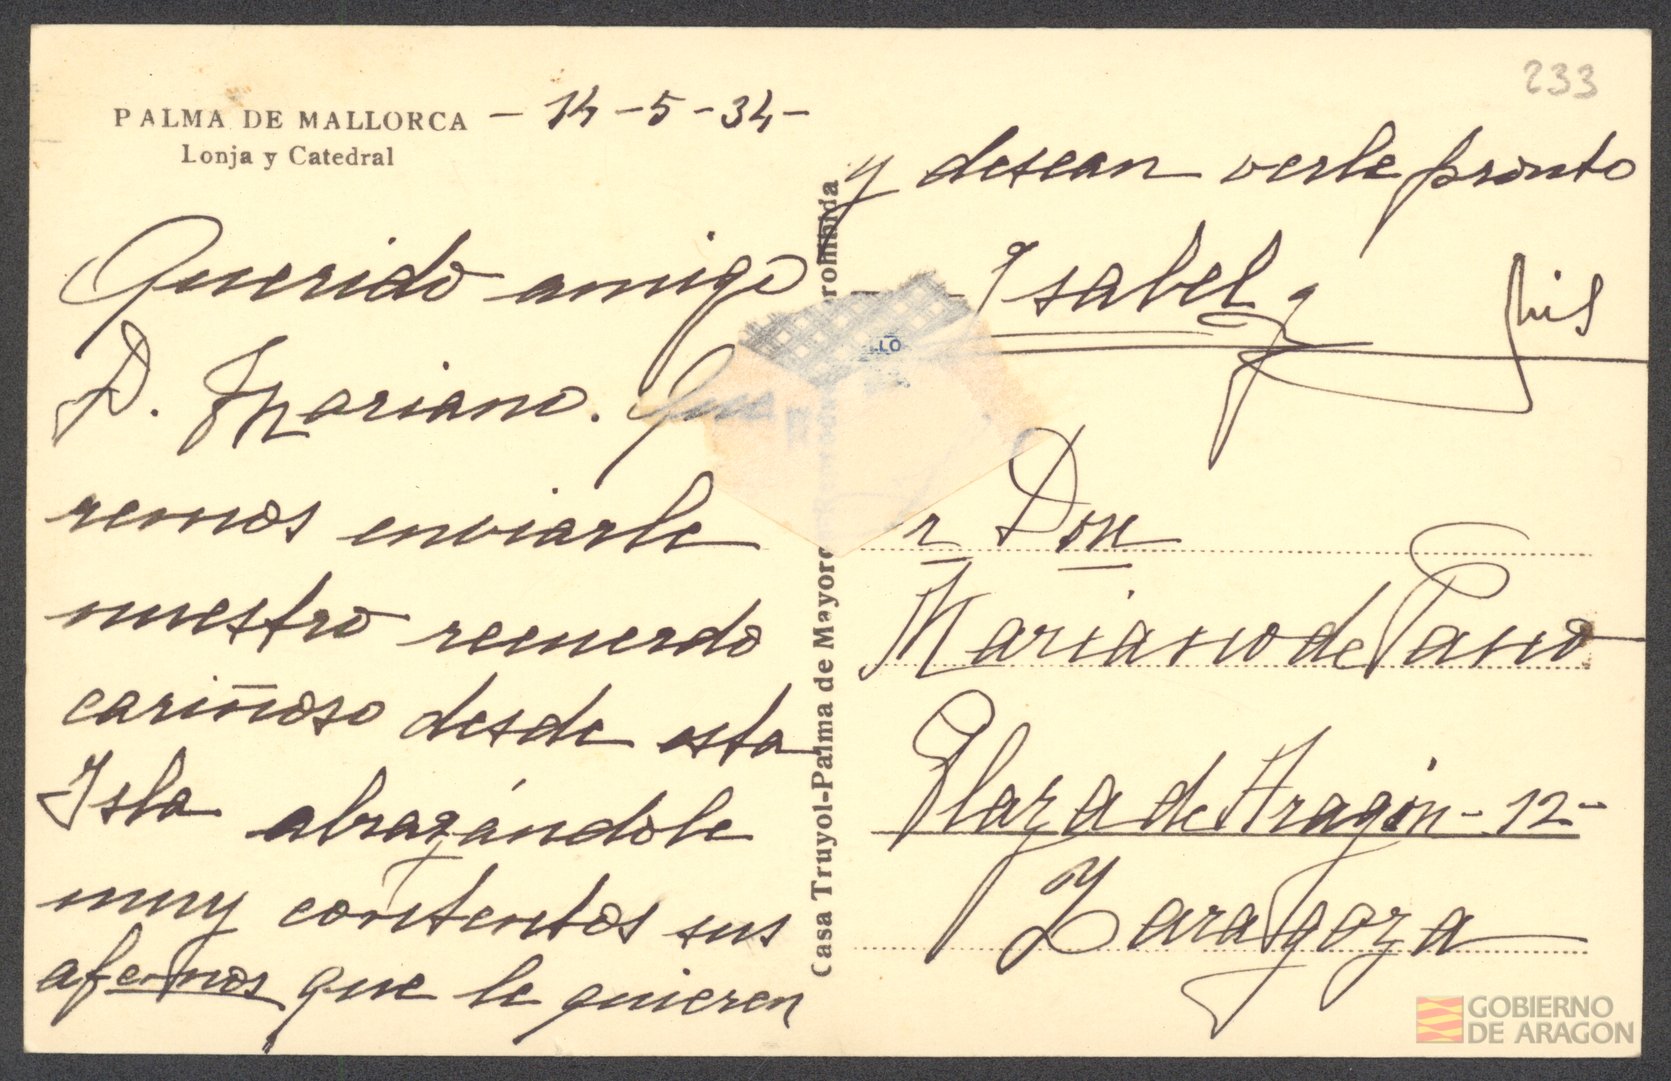 233
PALMA DE MALLORCA - 14-5-34-
Lonja y Catedral
Querido amigo
D. Mariano. Que
remos enviarle
nuestro recuerdo
cariñoso desde esta
Isla abrazándole
muy contentos sus
afermos que le quieren
y desean verle pronto
Isabel y
Luis
r Don
Mariano de Pano
Plaza de Aragón-12-
Zaragoza
Casa Truyol-Palma de Mayorc
rohibida
LLO
GOBIERNO
DE ARAGON